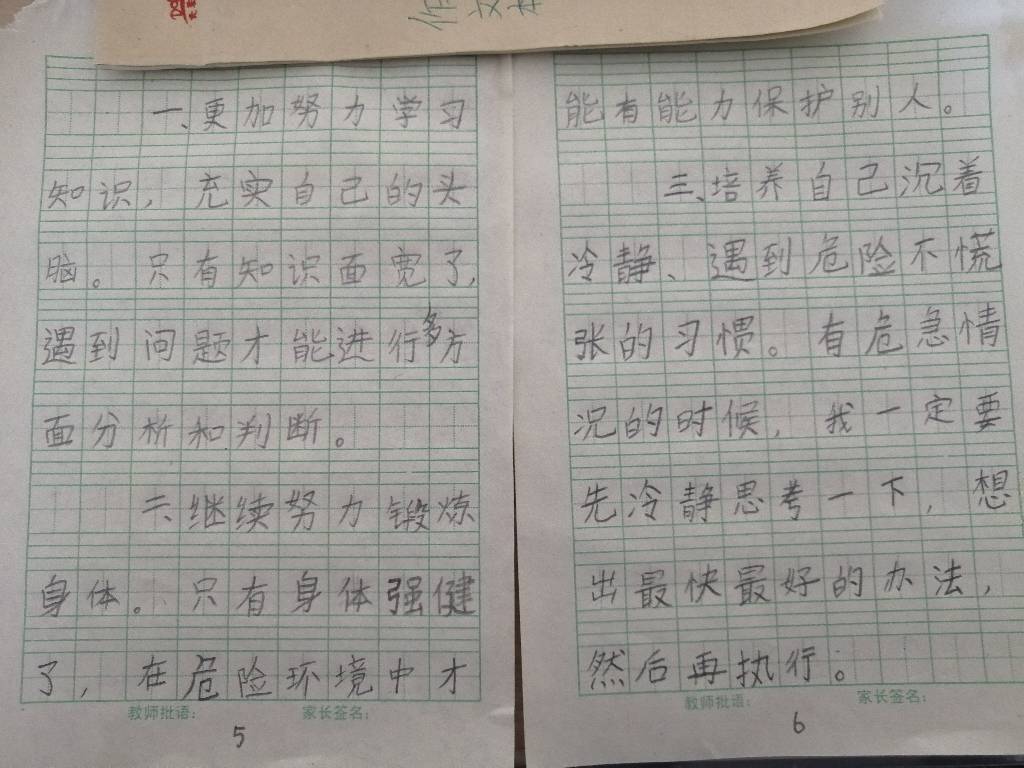 一、更加努力学习
知识，充实自己的头
脑。只有知识面宽了，
遇到问题才能进行多方
面分析和判断。
二、继续努力锻炼
身体。只有身体强健
了，在危险环境中才
教师批语： 家长签名：
5
能有能力保护别人。
三、培养自己沉着
冷静、遇到危险不慌
张的习惯。有危急情
况的时候，我一定要
先冷静思考一下，想
出最快最好的办法，
然后再执行。
教师批语： 家长签名：
6